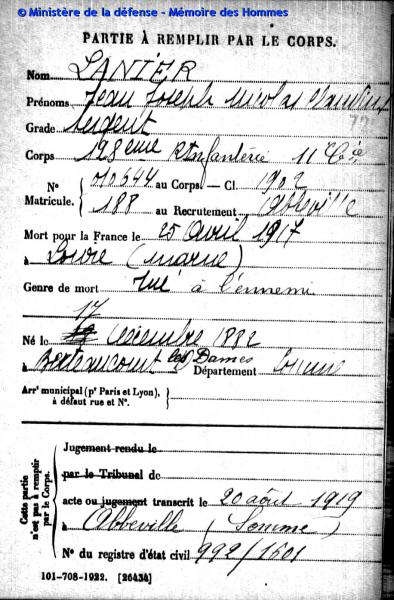 © Ministère de la défense - Mémoire des Hommes
PARTIE À REMPLIR PAR LE CORPS.
Nom LANIER
Prénoms Jean Joseph Nicolas
Grade Sergent
Corps 128eme Rt Infanterie 11e Cie
N° 010344 au Corps. — Cl. 1902
Matricule. 188 au Recrutement Abbeville
Mort pour la France le 25 Avril 1917
à Loivre (Marne)
Genre de mort Tué à l'ennemi
17
Né le décembre 1882
à Berteaucourt les Dames Département Somme
Arrt municipal (pr Paris et Lyon),
à défaut rue et N°.
Cette partie
n'est pas à remplir
par le Corps.
Jugement rendu le
par le Tribunal de
acte ou jugement transcrit le 20 août 1919
à Abbeville (Somme)
N° du registre d'état civil 992/1601
101-708-1922. [26434]